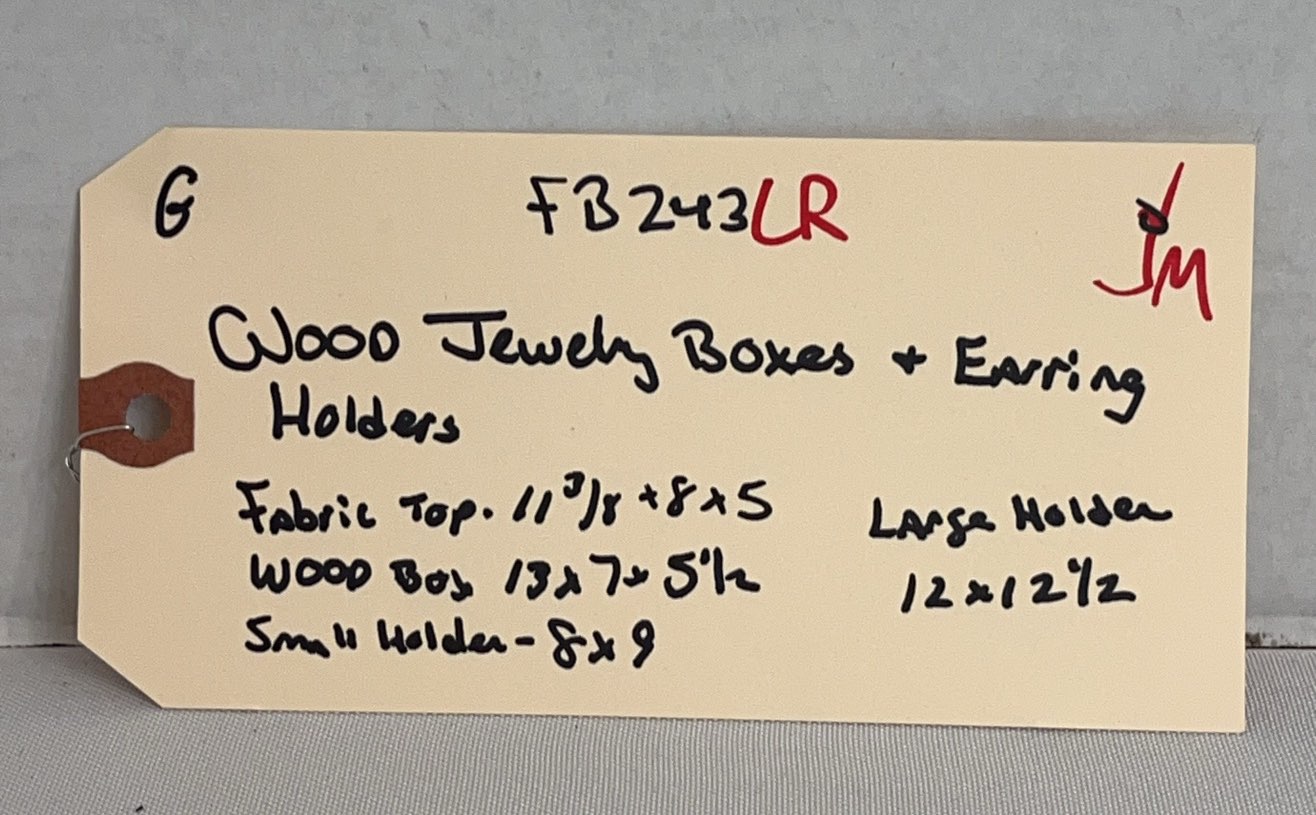 G FB243LR JM
Wood Jewelry Boxes + Earring
Holders
Fabric Top. 11 3/8 x 8 x 5
Wood Box 13 x 7 x 5 1/2
Small Holder - 8 x 9
Large Holder
12 x 12 1/2